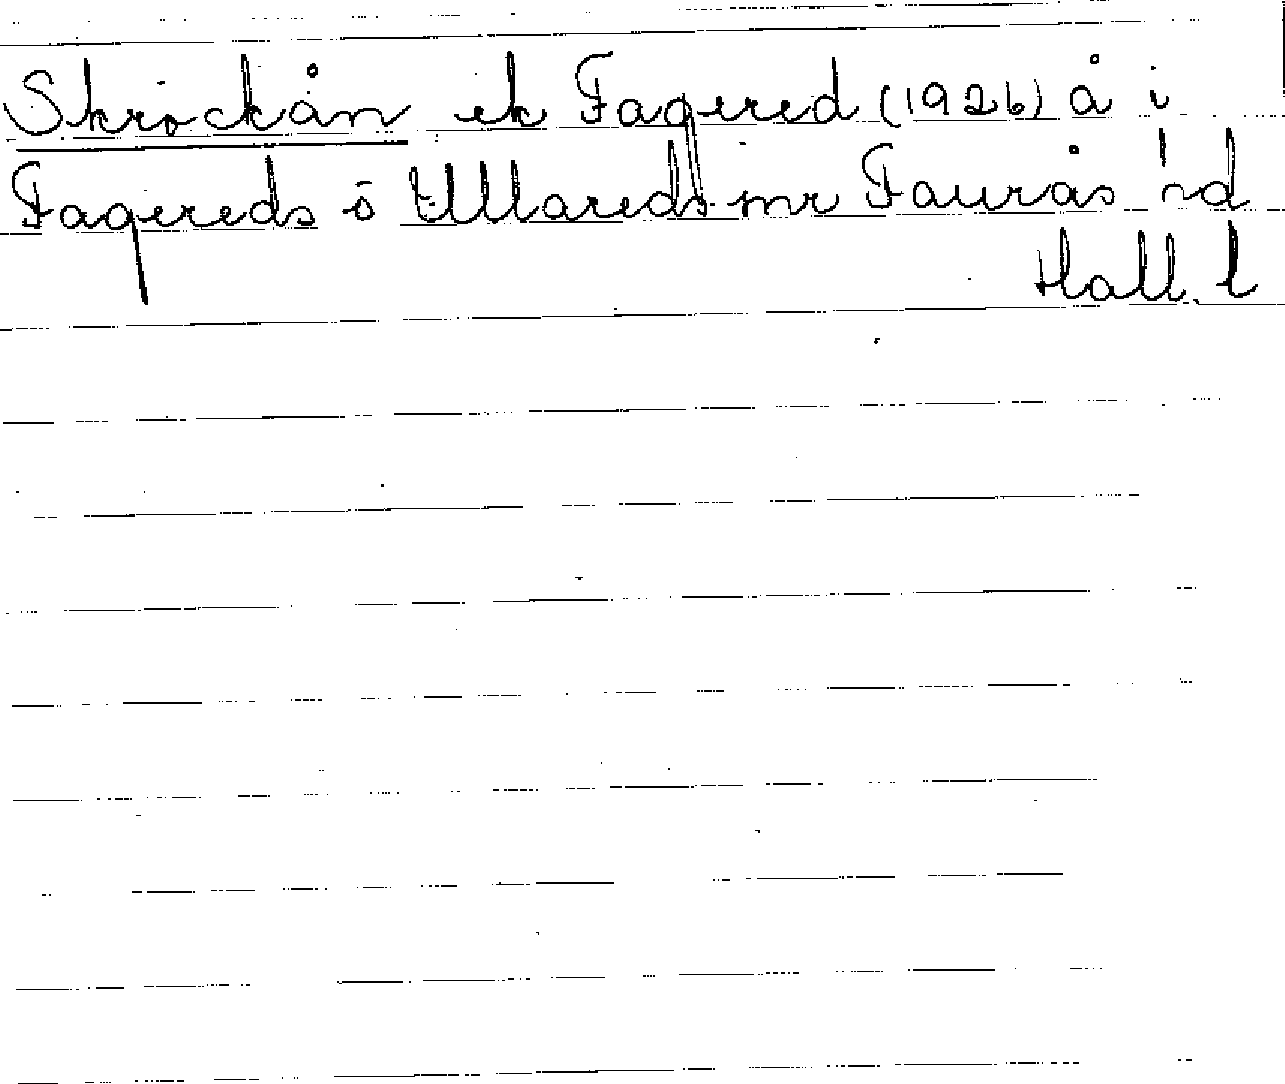 Skröckån ek Fagered (1926) å i
Fagereds ö Ullareds snr Faurås hd
Hall. l